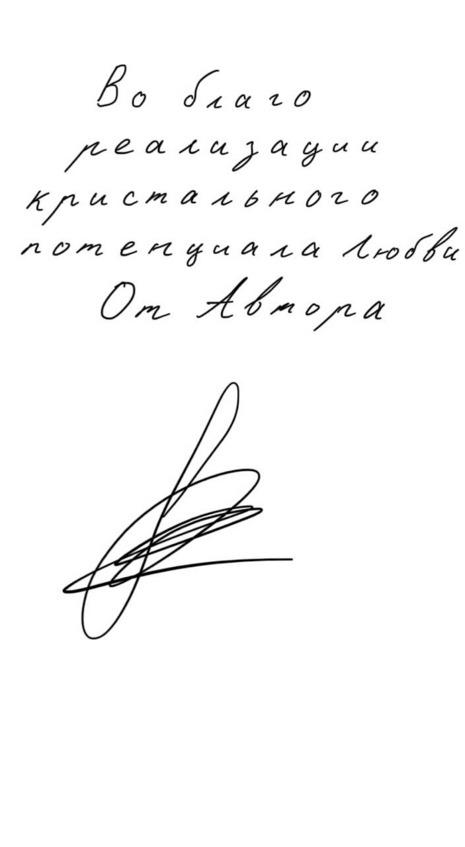 Во благо
реализации
кристального
потенциала Любви
От Автора